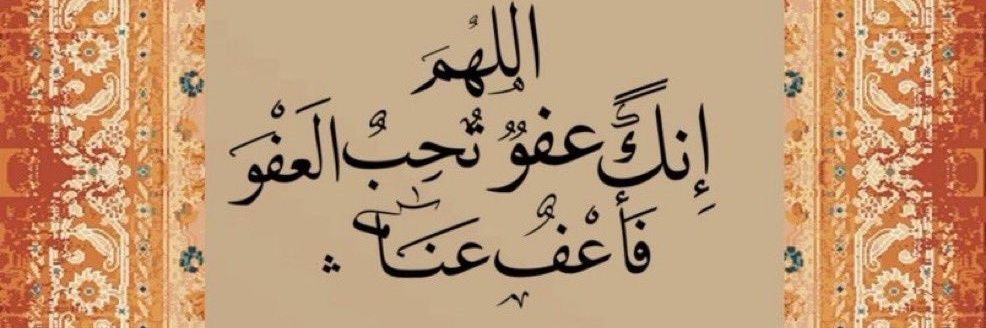 اللهُمَ
إِنكَ عفوٌ تُحِبُ العَفْوَ
فَأعْفُ عنَا